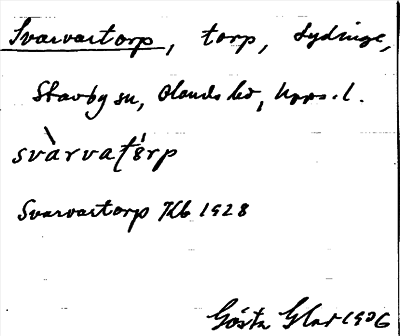 Svarvartorp, torp, Sydinge,
Stavby sn, Olands hd, Upps. l.
svàrvatórp
Svarvartorp Jkb 1928
Gösta Glas 1936